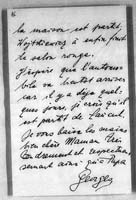 la maison est partes,
a enfin finit
le salon rouge.
J'espère que l'automo-
bile va bientôt arriver
car il y a déjà quel-
ques jours, je crois qu'il
est parti de Saient.
Je vous baise les mains
bien chère Maman très
tendrement et respectueu-
sement ainsi qu'à Papa
Georges